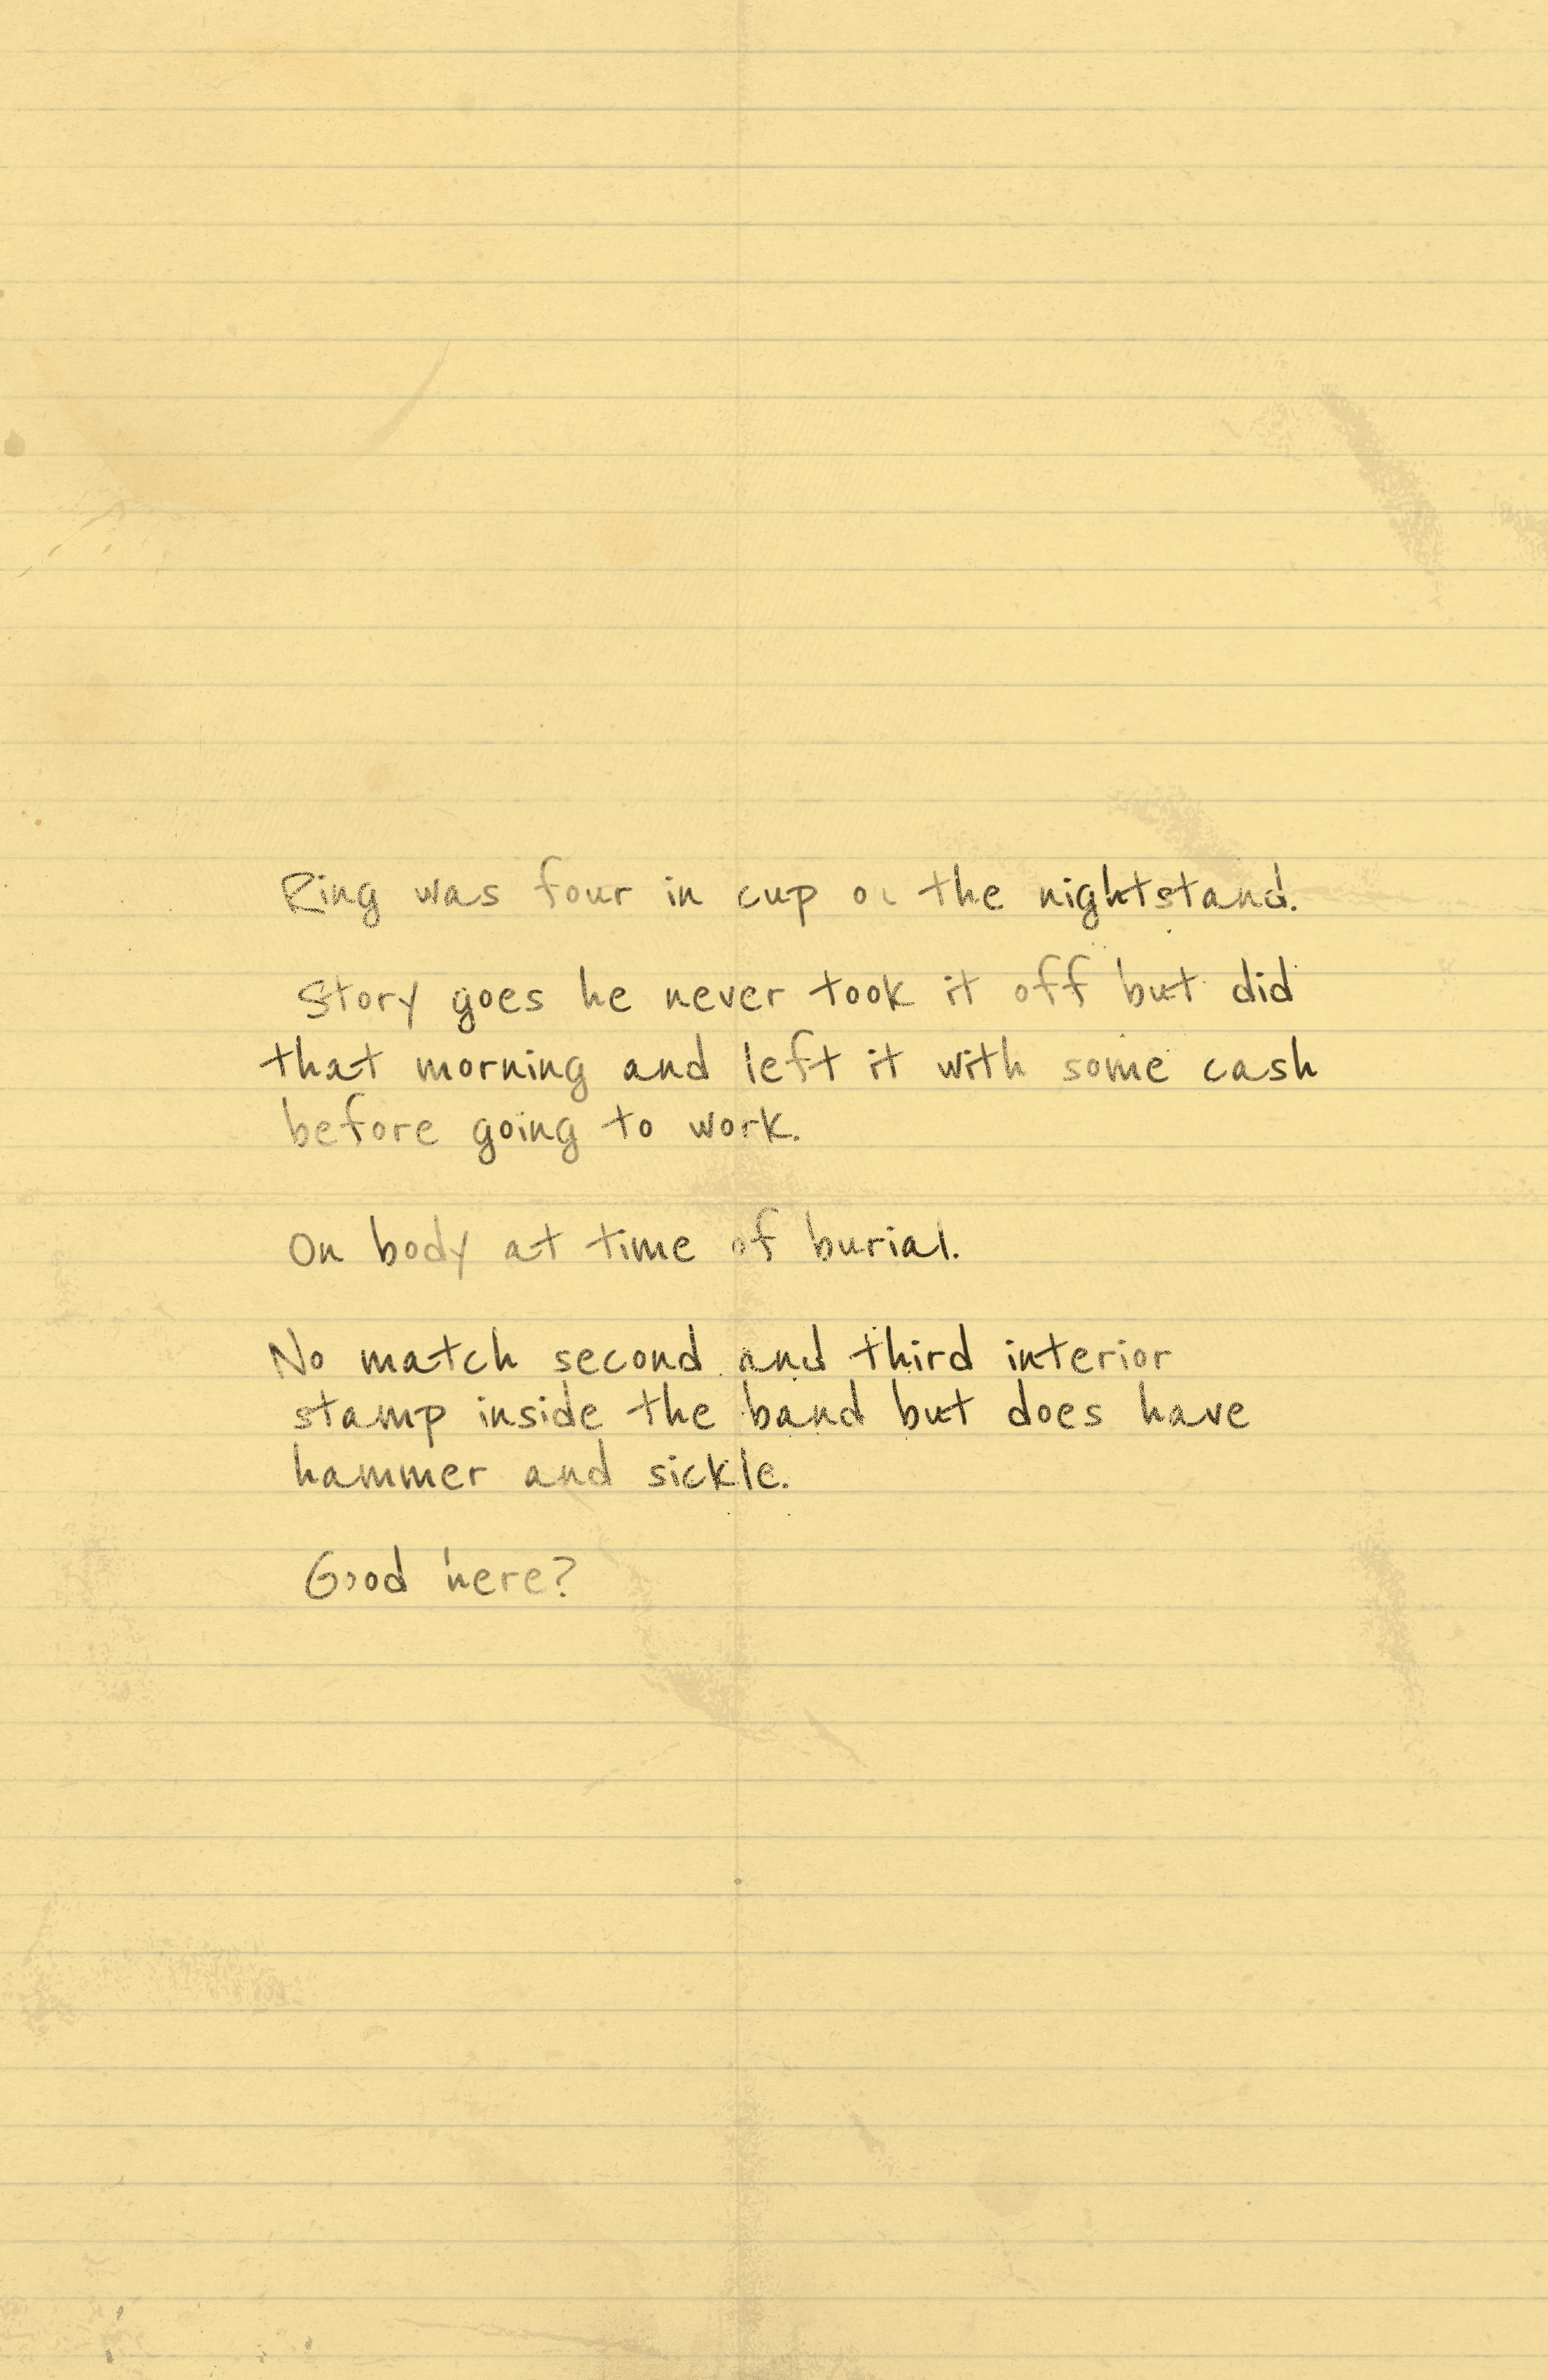 Ring was four in cup on the nightstand.
Story goes he never took it off but did
that morning and left it with some cash
before going to work.
On body at time of burial.
No match second and third interior
stamp inside the band but does have
hammer and sickle.
Good here?